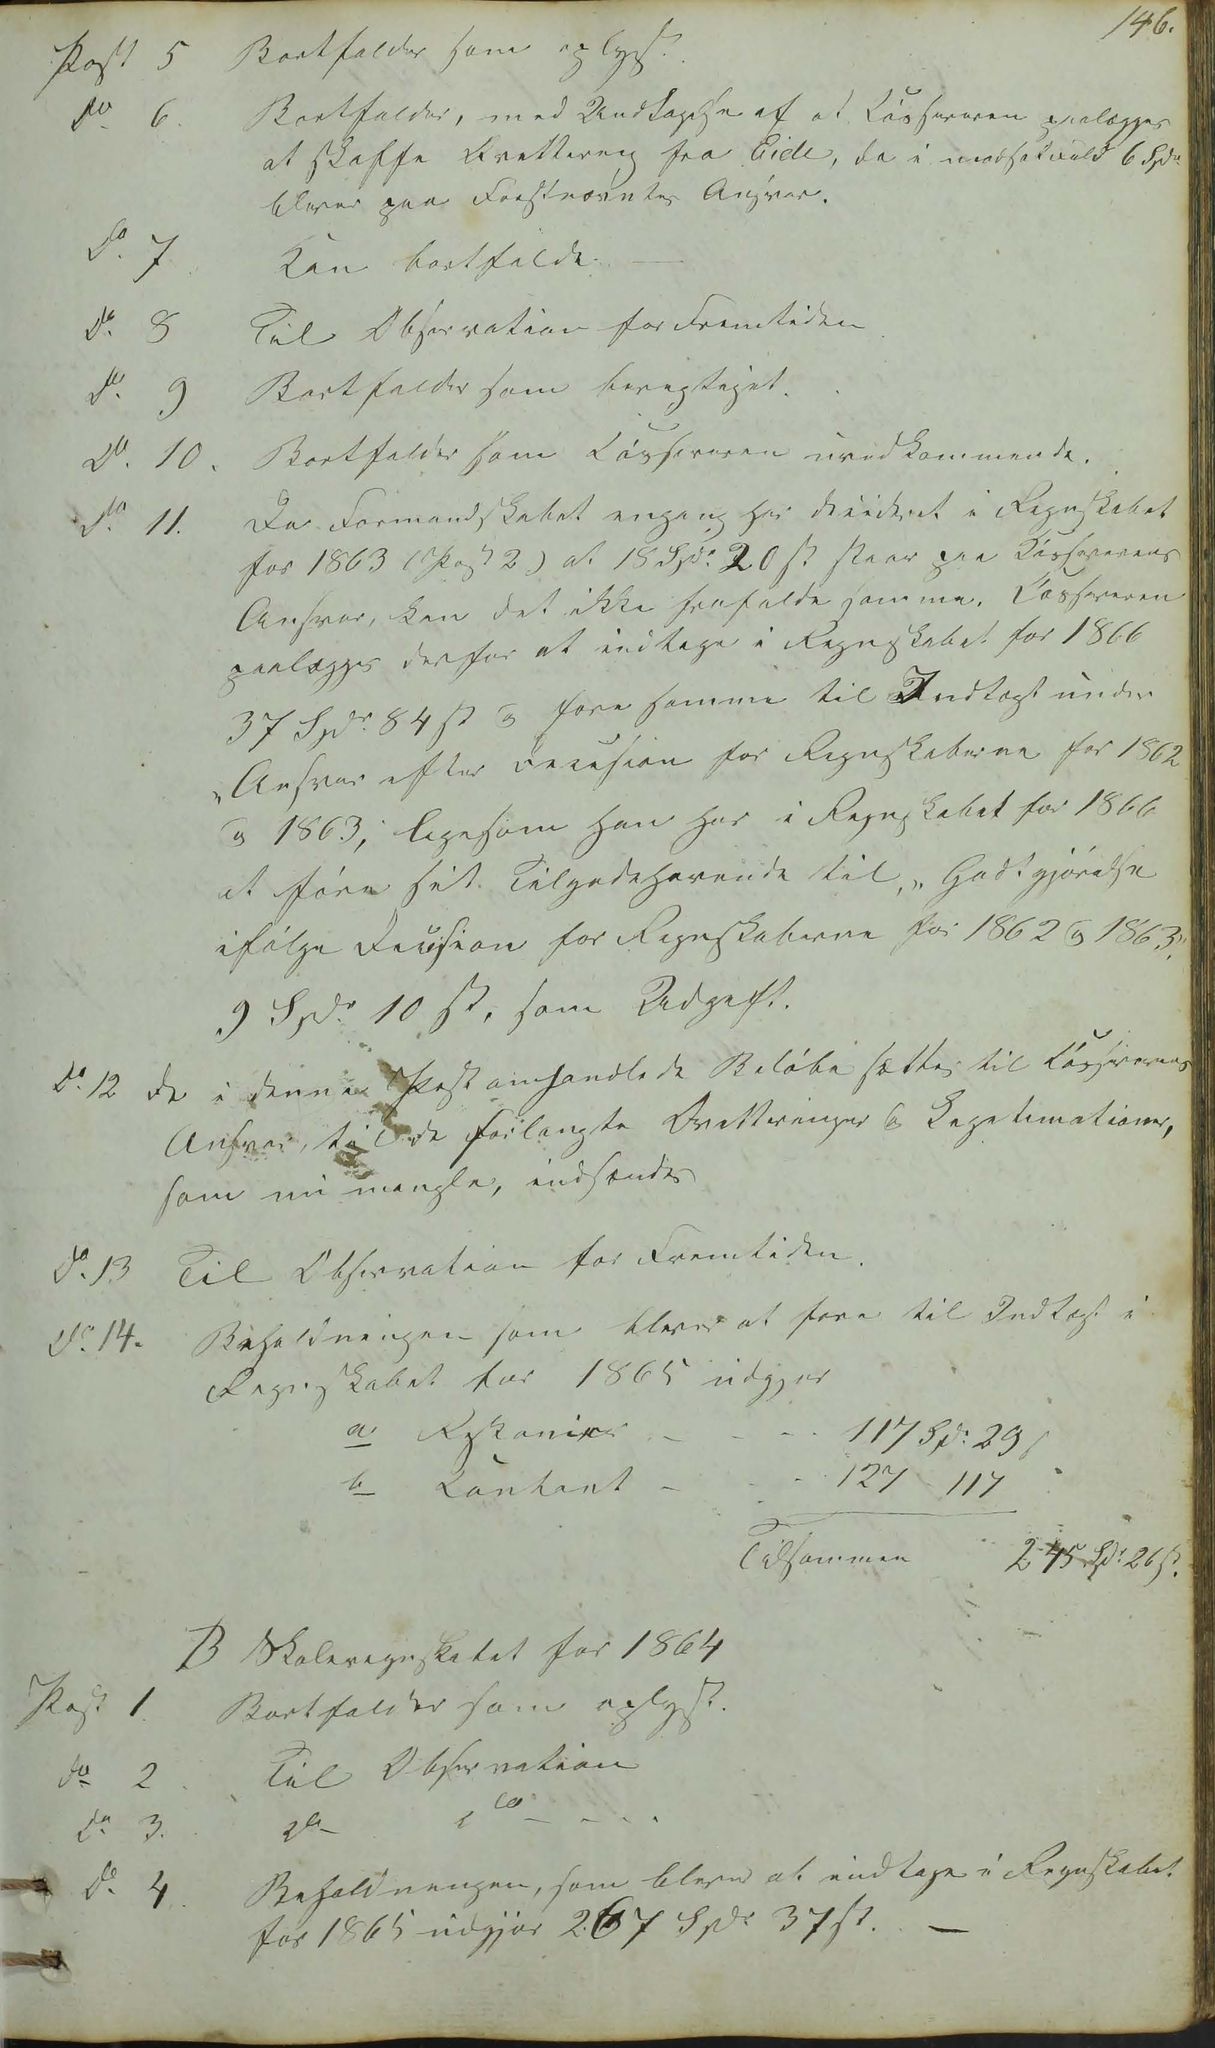 146.
Post 5 Bortfalder som oplyst.
Do 6. Bortfalder, med Undtagelse af at Kassereren paalægges
at skaffe Qvittering fra Eide, da i modsat Fald 6 Spd
bliver paa Førstnævntes Ansvar.
Do. 7 Kan bortfalde
Do. 8 Til Observation for Fremtiden
Do. 9 Bortfalder som berigtiget.
Do. 10. Bortfalder som Kassereren uvedkommende.
Do. 11. Da Formandskabet engang har decideret i Regnskabet
for 1863 (Post 2) at 18 Spdr. 20 st staar paa Kassererens
Ansvar, kan det ikke frafalde samme. Kassereren
paalægges derfor at indtage i Regnskabet for 1866
37 Spdr. 84 st og føre samme til Indtægt under
"Ansvar efter Decision for Regnskaberne for 1862
og 1863, ligesom han har i Regnskabet for 1866
at føre sit Tilgodehavende til, "Godtgjørelse
ifølge Decision for Regnskaberne for 1862 og 1863",
9 Spdr 10 st, som Udgift.
Do. 12 De i denne Post omhandlede Beløbe sættes til Kassererens
Ansvar, til de forlangte Qvitteringer og Legitimationer,
som nu mangle, indsendes
Do. 13 Til Observation for Fremtiden.
Do. 14. Beholdningen som bliver at føre til Indtægt i
Regnskabet for 1865 udgjør
a Restancer - - - 117 Spd. 29 s
b Contant - - - 127 - 117
Tilsammen 245 Spdr 26 st.
B Skoleregnskabet for 1864
Post 1. Bortfalder som oplyst.
do 2. Til Observation
Do 3. do do - - - .
Do. 4. Beholdningen, som bliver at indtage i Regnskabet
for 1865 udgjør 267 Spdr 37 st. —